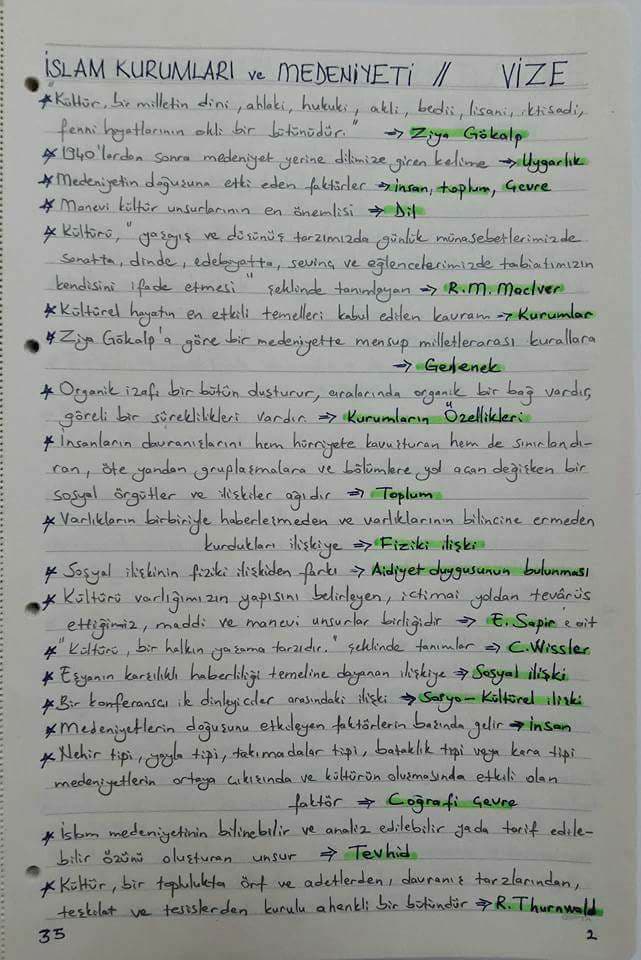 İSLAM KURUMLARI ve MEDENİYETİ // VİZE
* "Kültür, bir milletin dini, ahlaki, hukuki, akli, bedii, lisani, iktisadi,
fenni hayatlarının akli bir bütünüdür." ⇒ Ziya Gökalp
* 1940'lardan sonra medeniyet yerine dilimize giren kelime ⇒ Uygarlık
* Medeniyetin doğuşuna etki eden faktörler ⇒ insan, toplum, Çevre
* Manevi kültür unsurlarının en önemlisi ⇒ Dil
* Kültürü, "yaşayış ve düşünüş tarzımızda, günlük münasebetlerimizde
sanatta, dinde, edebiyatta, sevinç ve eğlencelerimizde tabiatımızın
kendisini ifade etmesi" şeklinde tanımlayan ⇒ R.M. MacIver
* Kültürel hayatın en etkili temelleri kabul edilen kavram ⇒ Kurumlar
* Ziya Gökalp'a göre bir medeniyette mensup milletlerarası kurallara
⇒ Gelenek
* Organik izafi bir bütün oluşturur, aralarında organik bir bağ vardır,
göreli bir süreklilikleri vardır. ⇒ Kurumların Özellikleri
* İnsanların davranışlarını hem hürriyete kavuşturan hem de sınırlandı-
ran, öte yandan gruplaşmalara ve bölümlere yol açan değişken bir
sosyal örgütler ve ilişkiler ağıdır ⇒ Toplum
* Varlıkların birbiriyle haberleşmeden ve varlıklarının bilincine ermeden
kurdukları ilişkiye ⇒ Fiziki ilişki
* Sosyal ilişkinin fiziki ilişkiden farkı ⇒ Aidiyet duygusunun bulunması
* Kültürü varlığımızın yapısını belirleyen, ictimai yoldan tevârüs
ettiğimiz, maddi ve manevi unsurlar birliğidir ⇒ E. Sapir'e ait
* "Kültürü, bir halkın yaşama tarzıdır." şeklinde tanımlar ⇒ C. Wissler
* Eşyanın karşılıklı haberliliği temeline dayanan ilişkiye ⇒ Sosyal ilişki
* Bir konferansçı ile dinleyiciler arasındaki ilişki ⇒ Sosyo-Kültürel ilişki
* Medeniyetlerin doğuşunu etkileyen faktörlerin başında gelir ⇒ insan
* Nehir tipi, yayla tipi, takımadalar tipi, bataklık tipi veya kara tipi
medeniyetlerin ortaya çıkışında ve kültürün oluşmasında etkili olan
faktör ⇒ Coğrafi Çevre
* İslam medeniyetinin bilinebilir ve analiz edilebilir yada tarif edile-
bilir özünü oluşturan unsur ⇒ Tevhid
* Kültür, bir toplulukta örf ve adetlerden, davranış tarzlarından,
teşkilat ve tesislerden kurulu ahenkli bir bütündür ⇒ R. Thurnwald
35 2